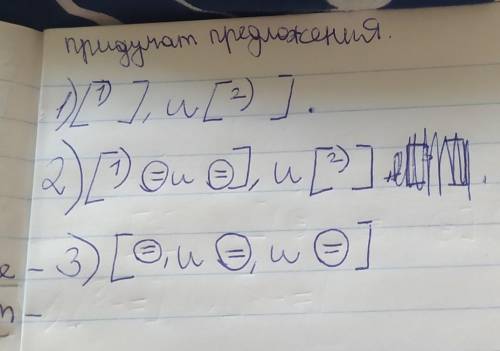 придучат предложения.
1) [1) ], и [2) ].
2) [1) ⊜ и ⊜], и [2) ] .
е - 3) [⊜, и ⊜, и ⊜]
п -